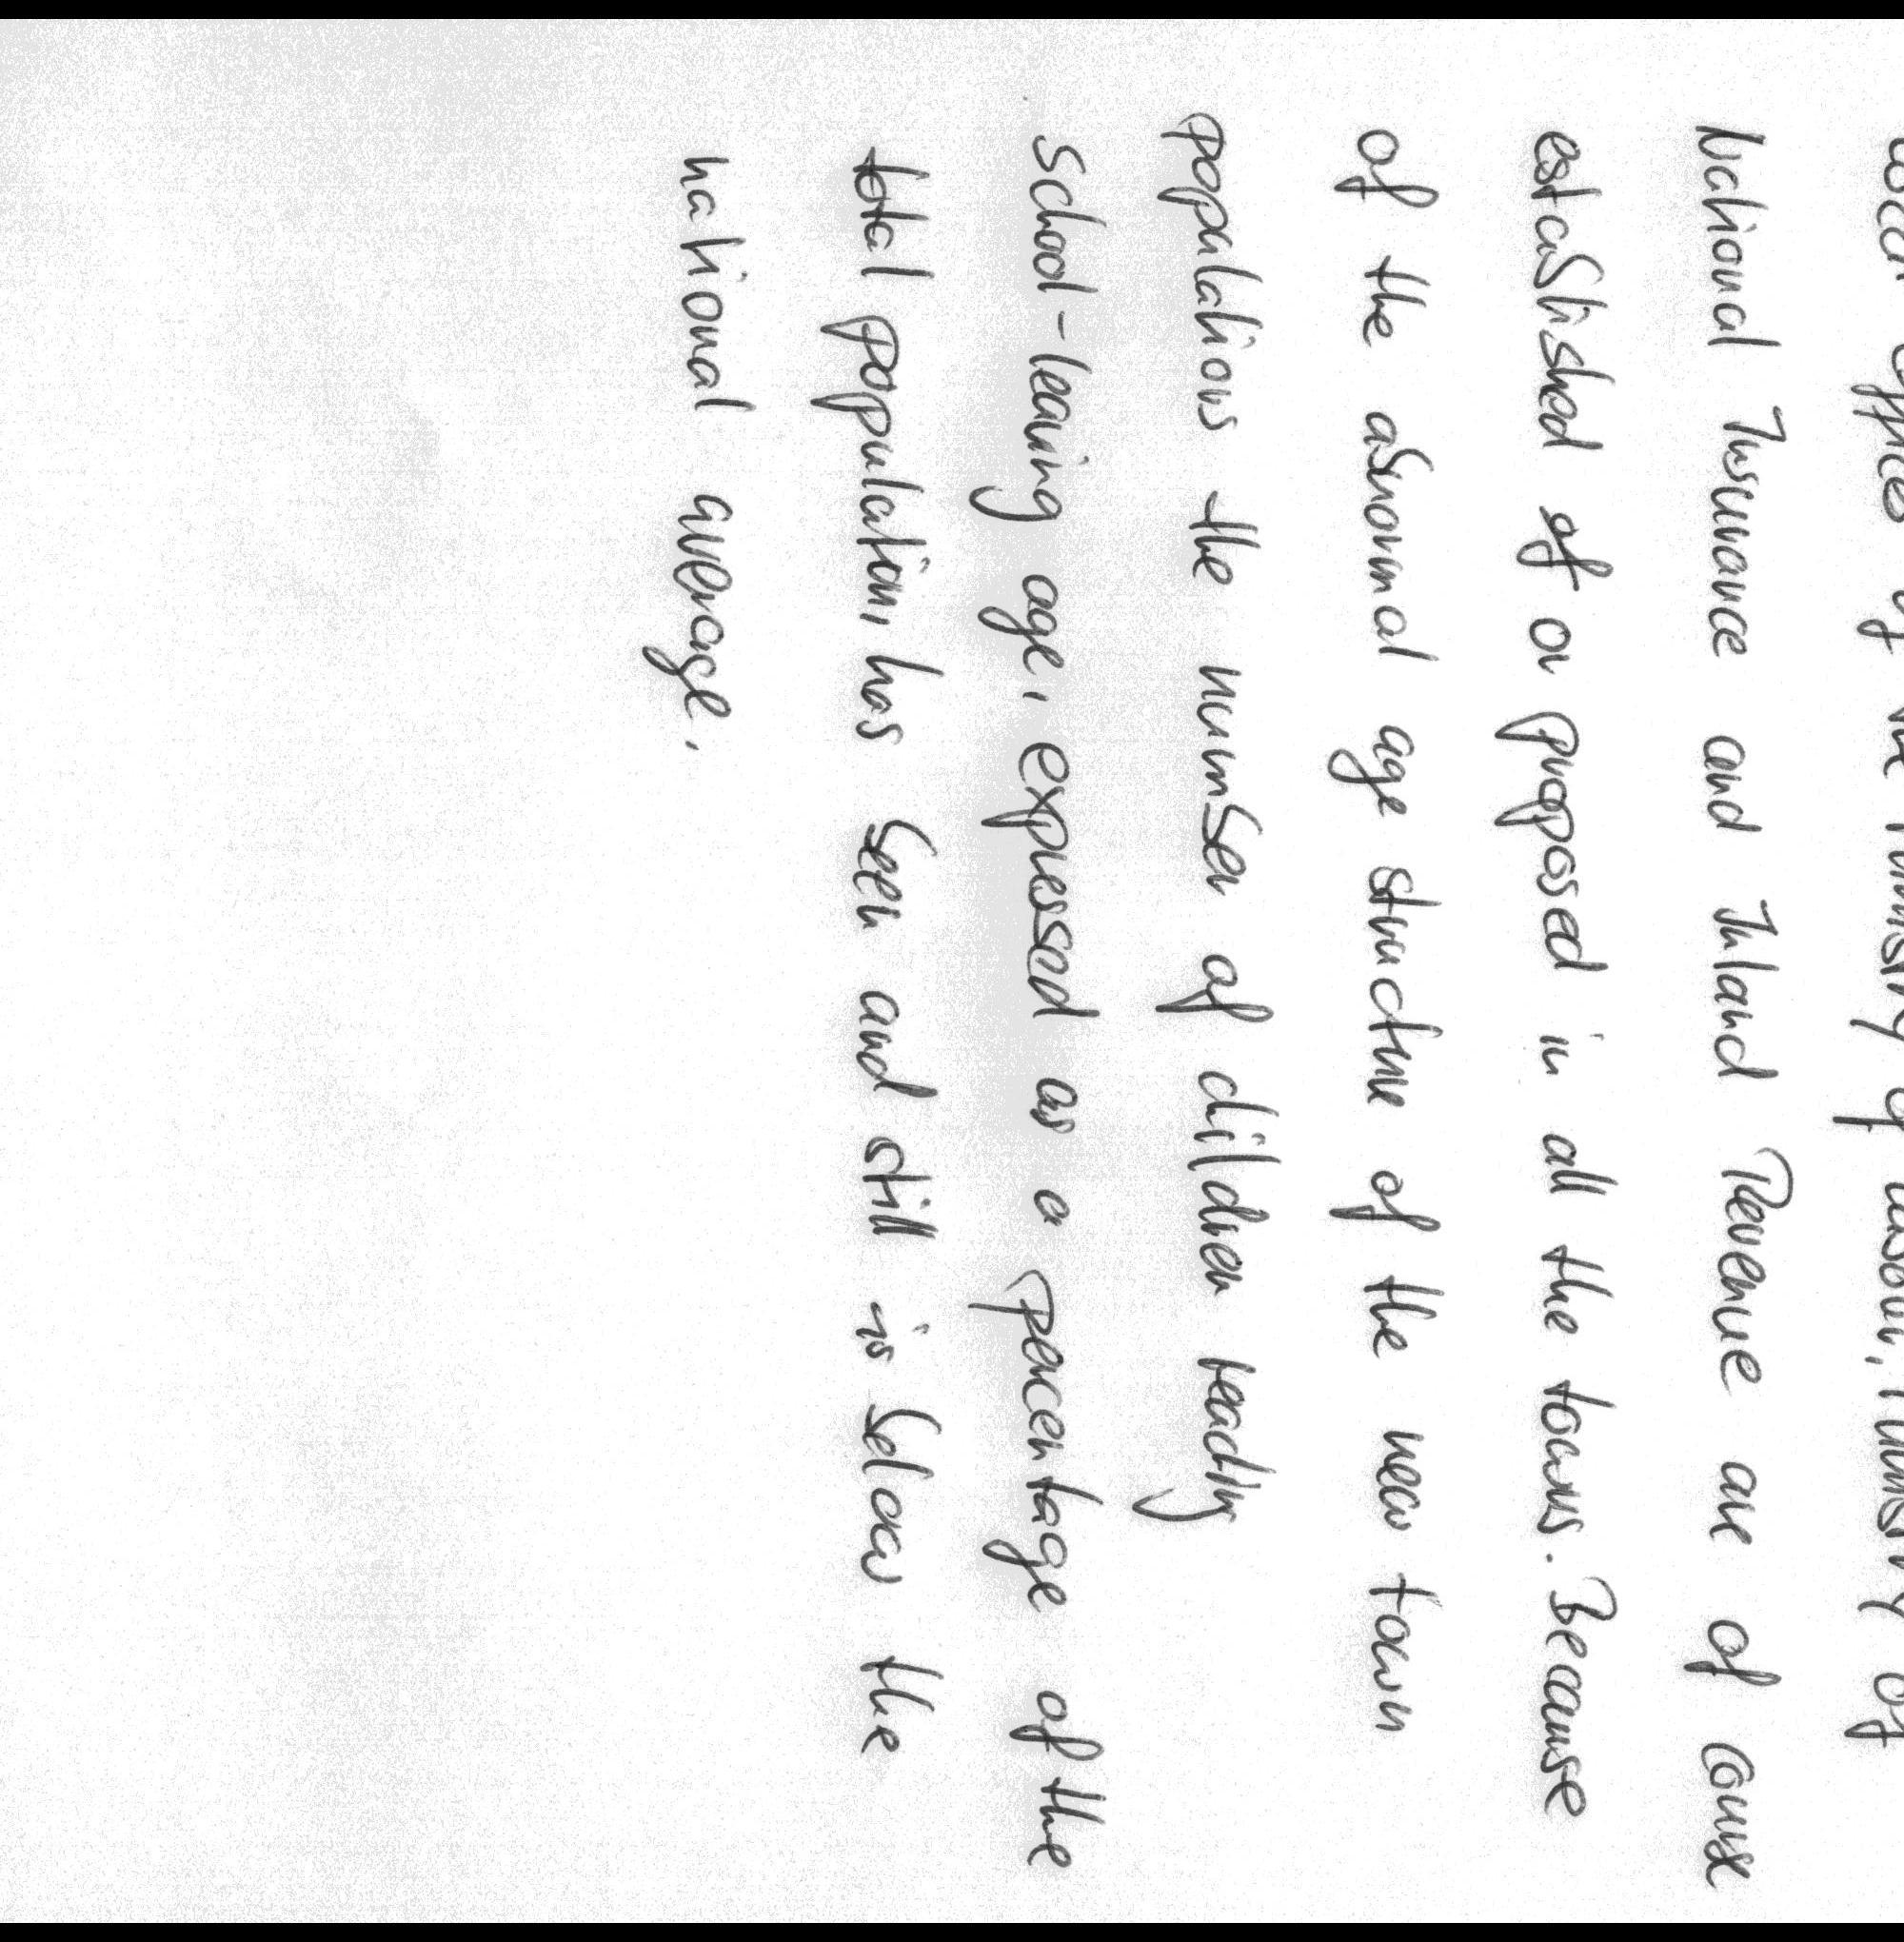 Local Offices of the Ministry of Labour, Ministry of
National Insurance and Inland Revenue are of course
established of or proposed in all the towns. Because
of the abnormal age structure of the new town
populations the number of children reading
school-leaving age, expressed as a percentage of the
total population, has been and still is below the
national average.